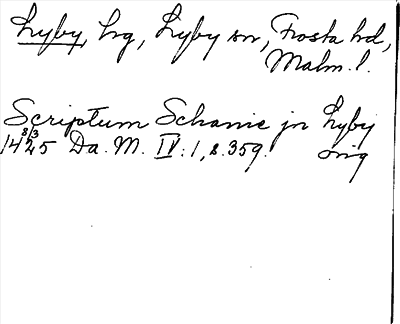 Lyby, hg, Lyby sn, Frosta hd,
Malm. l.
Scriptum Schanie jn Lyby
8/3
1425 Da. M. IV: 1, s. 359. orig